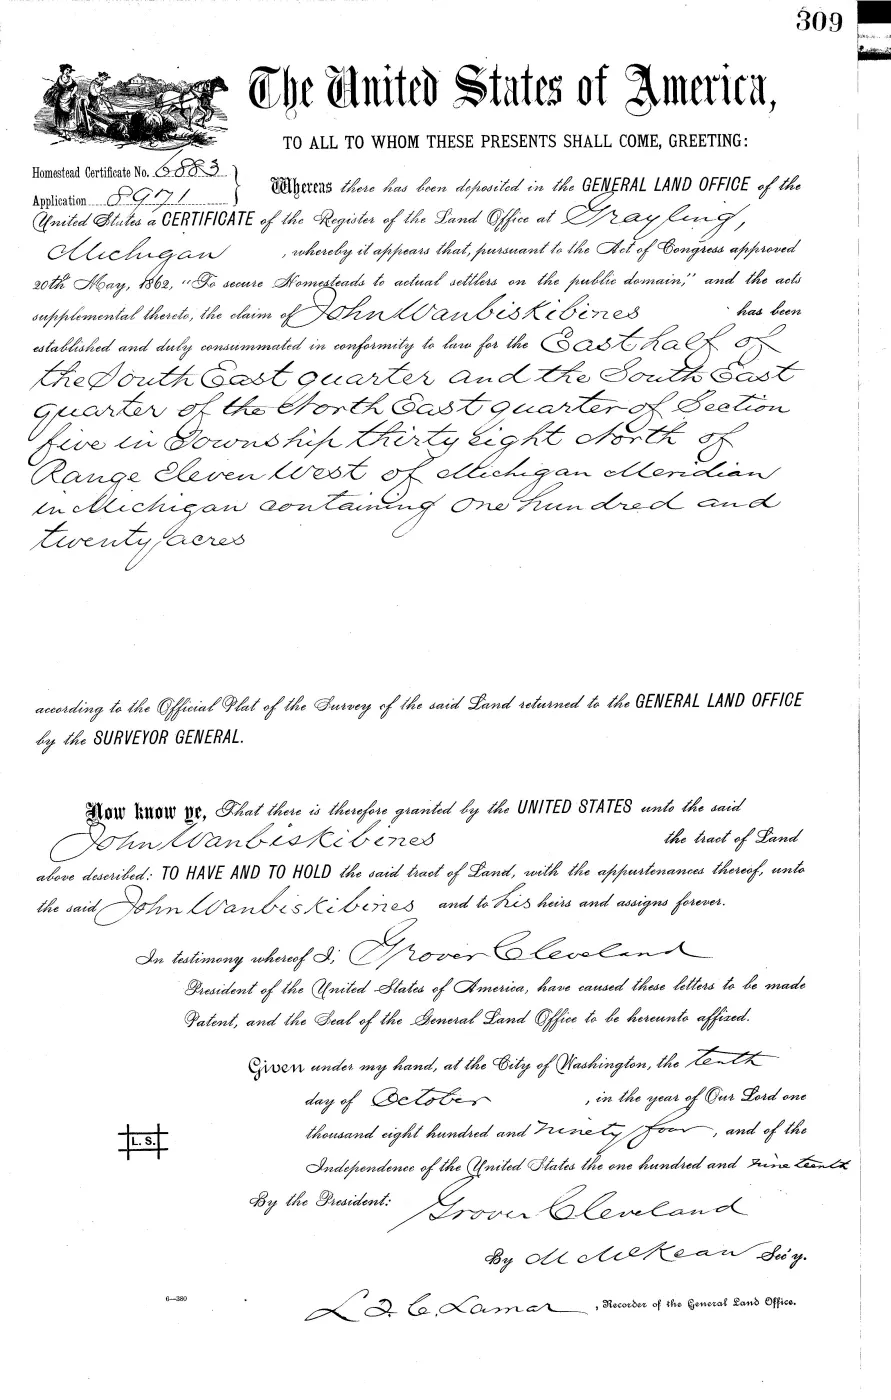 309
The United States of America,
TO ALL TO WHOM THESE PRESENTS SHALL COME, GREETING:
Homestead Certificate No. 6883
Application 8971
Whereas there has been deposited in the GENERAL LAND OFFICE of the
United States a CERTIFICATE of the Register of the Land Office at Grayling,
Michigan , whereby it appears that, pursuant to the Act of Congress approved
20th May, 1862, "To secure Homesteads to actual settlers on the public domain," and the acts
supplemental thereto, the claim of John Wanbiskibines has been
established and duly consummated in conformity to law for the East half of
the South East quarter and the South East
quarter of the North East quarter of Section
five in Township thirty eight North of
Range Eleven West of Michigan Meridian
in Michigan containing one hundred and
twenty acres
according to the Official Plat of the Survey of the said Land returned to the GENERAL LAND OFFICE
by the SURVEYOR GENERAL.
Now know ye, That there is therefore granted by the UNITED STATES unto the said
John Wanbiskibines the tract of Land
above described: TO HAVE AND TO HOLD the said tract of Land, with the appurtenances thereof, unto
the said John Wanbiskibines and to his heirs and assigns forever.
In testimony whereof I, Grover Cleveland
President of the United States of America, have caused these letters to be made
Patent, and the Seal of the General Land Office to be hereunto affixed.
Given under my hand, at the City of Washington, the tenth
day of October , in the year of Our Lord one
thousand eight hundred and ninety four , and of the
L. S.
Independence of the United States the one hundred and nineteenth
By the President: Grover Cleveland
By M McKean Sec'y.
6—380
L Q. C. Lamar , Recorder of the General Land Office.